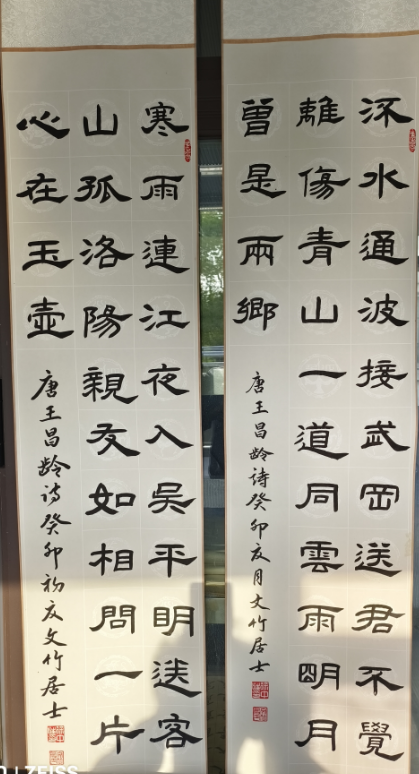 沅水通波接武岡送君不覺
離傷青山一道同雲雨明月
曾是兩鄉
唐王昌龄诗癸卯夏月文竹居士
寒雨連江夜入吴平明送客
山孤洛陽親友如相問一片
心在玉壺
唐王昌龄诗癸卯初夏文竹居士
ZEISS